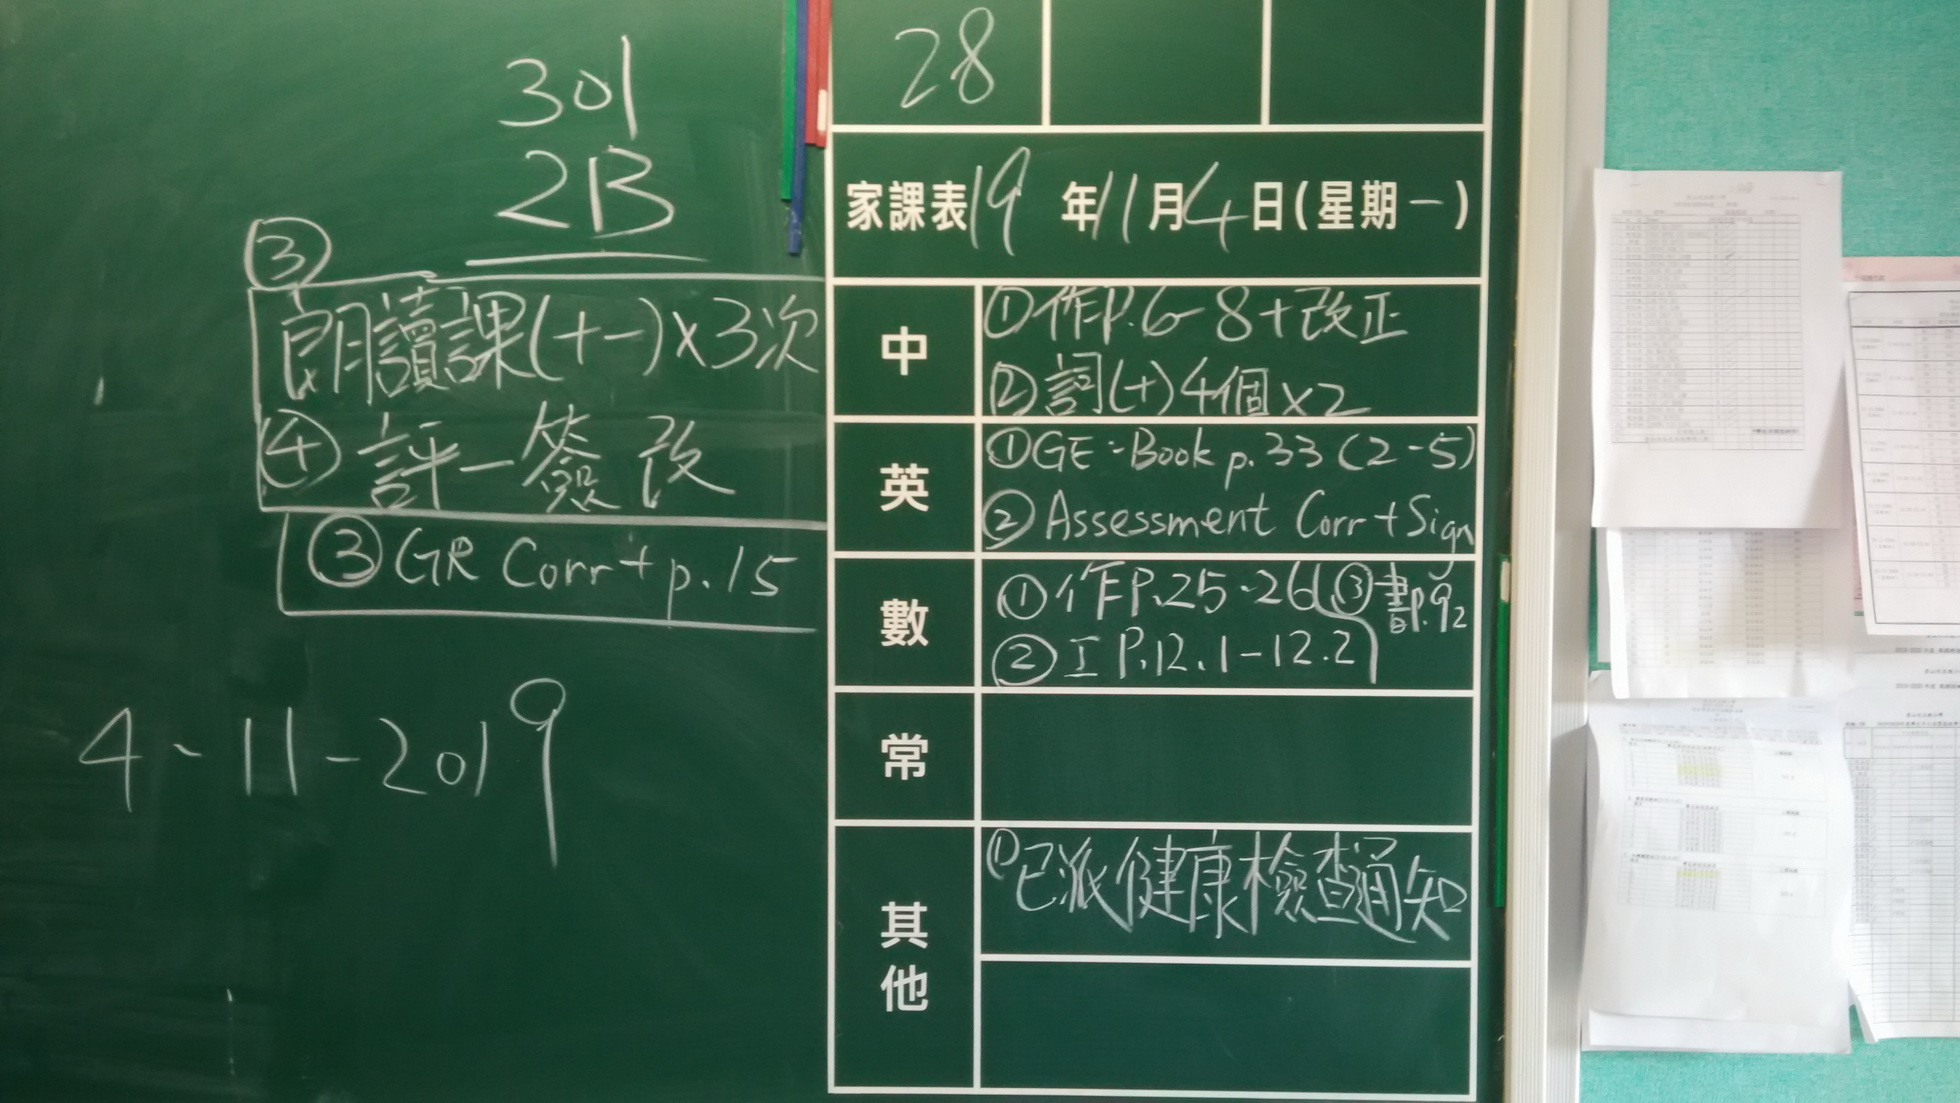 301
2B
28
家課表19年11月4日(星期一)
中
①作P.6-8+改正
②詞(十)4個×2
③
朗讀課(十一)×3次
④評一簽改
英
①GE:Book p.33(2-5)
②Assessment Corr+Sign
③GR Corr+p.15
數
①作P.25-26
②工P.12.1-12.2
③書P.92
常
其他
①已派健康檢查通知
4-11-2019